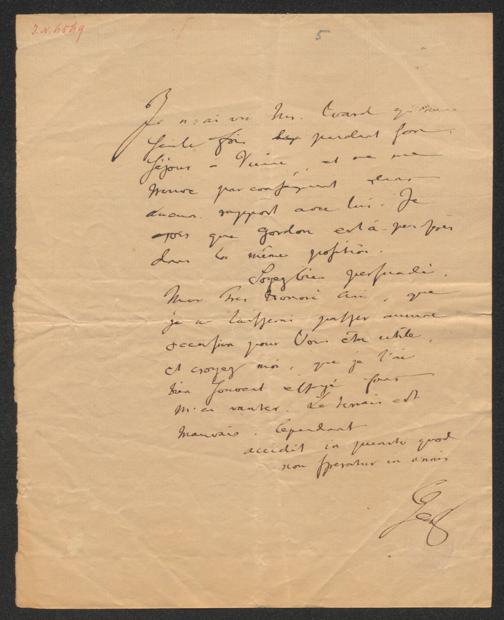 5
Je n'ai vu Mr. Ward qu'une
seule fois pendant son
séjour à Vienne, et ne me
trouve par conséquent dans
aucun rapport avec lui. Je
crois que Gordon est à peu près
dans la même position.
Soyez bien persuadé,
Mon très honoré ami, que
je ne laisserai passer aucune
occasion pour Vous être utile,
et croyez moi, que je l'ai
bien souvent essayé sans
m'en vanter. Le terrain est
mauvais. Cependant
accidit in puncto quod
non speratur in anno